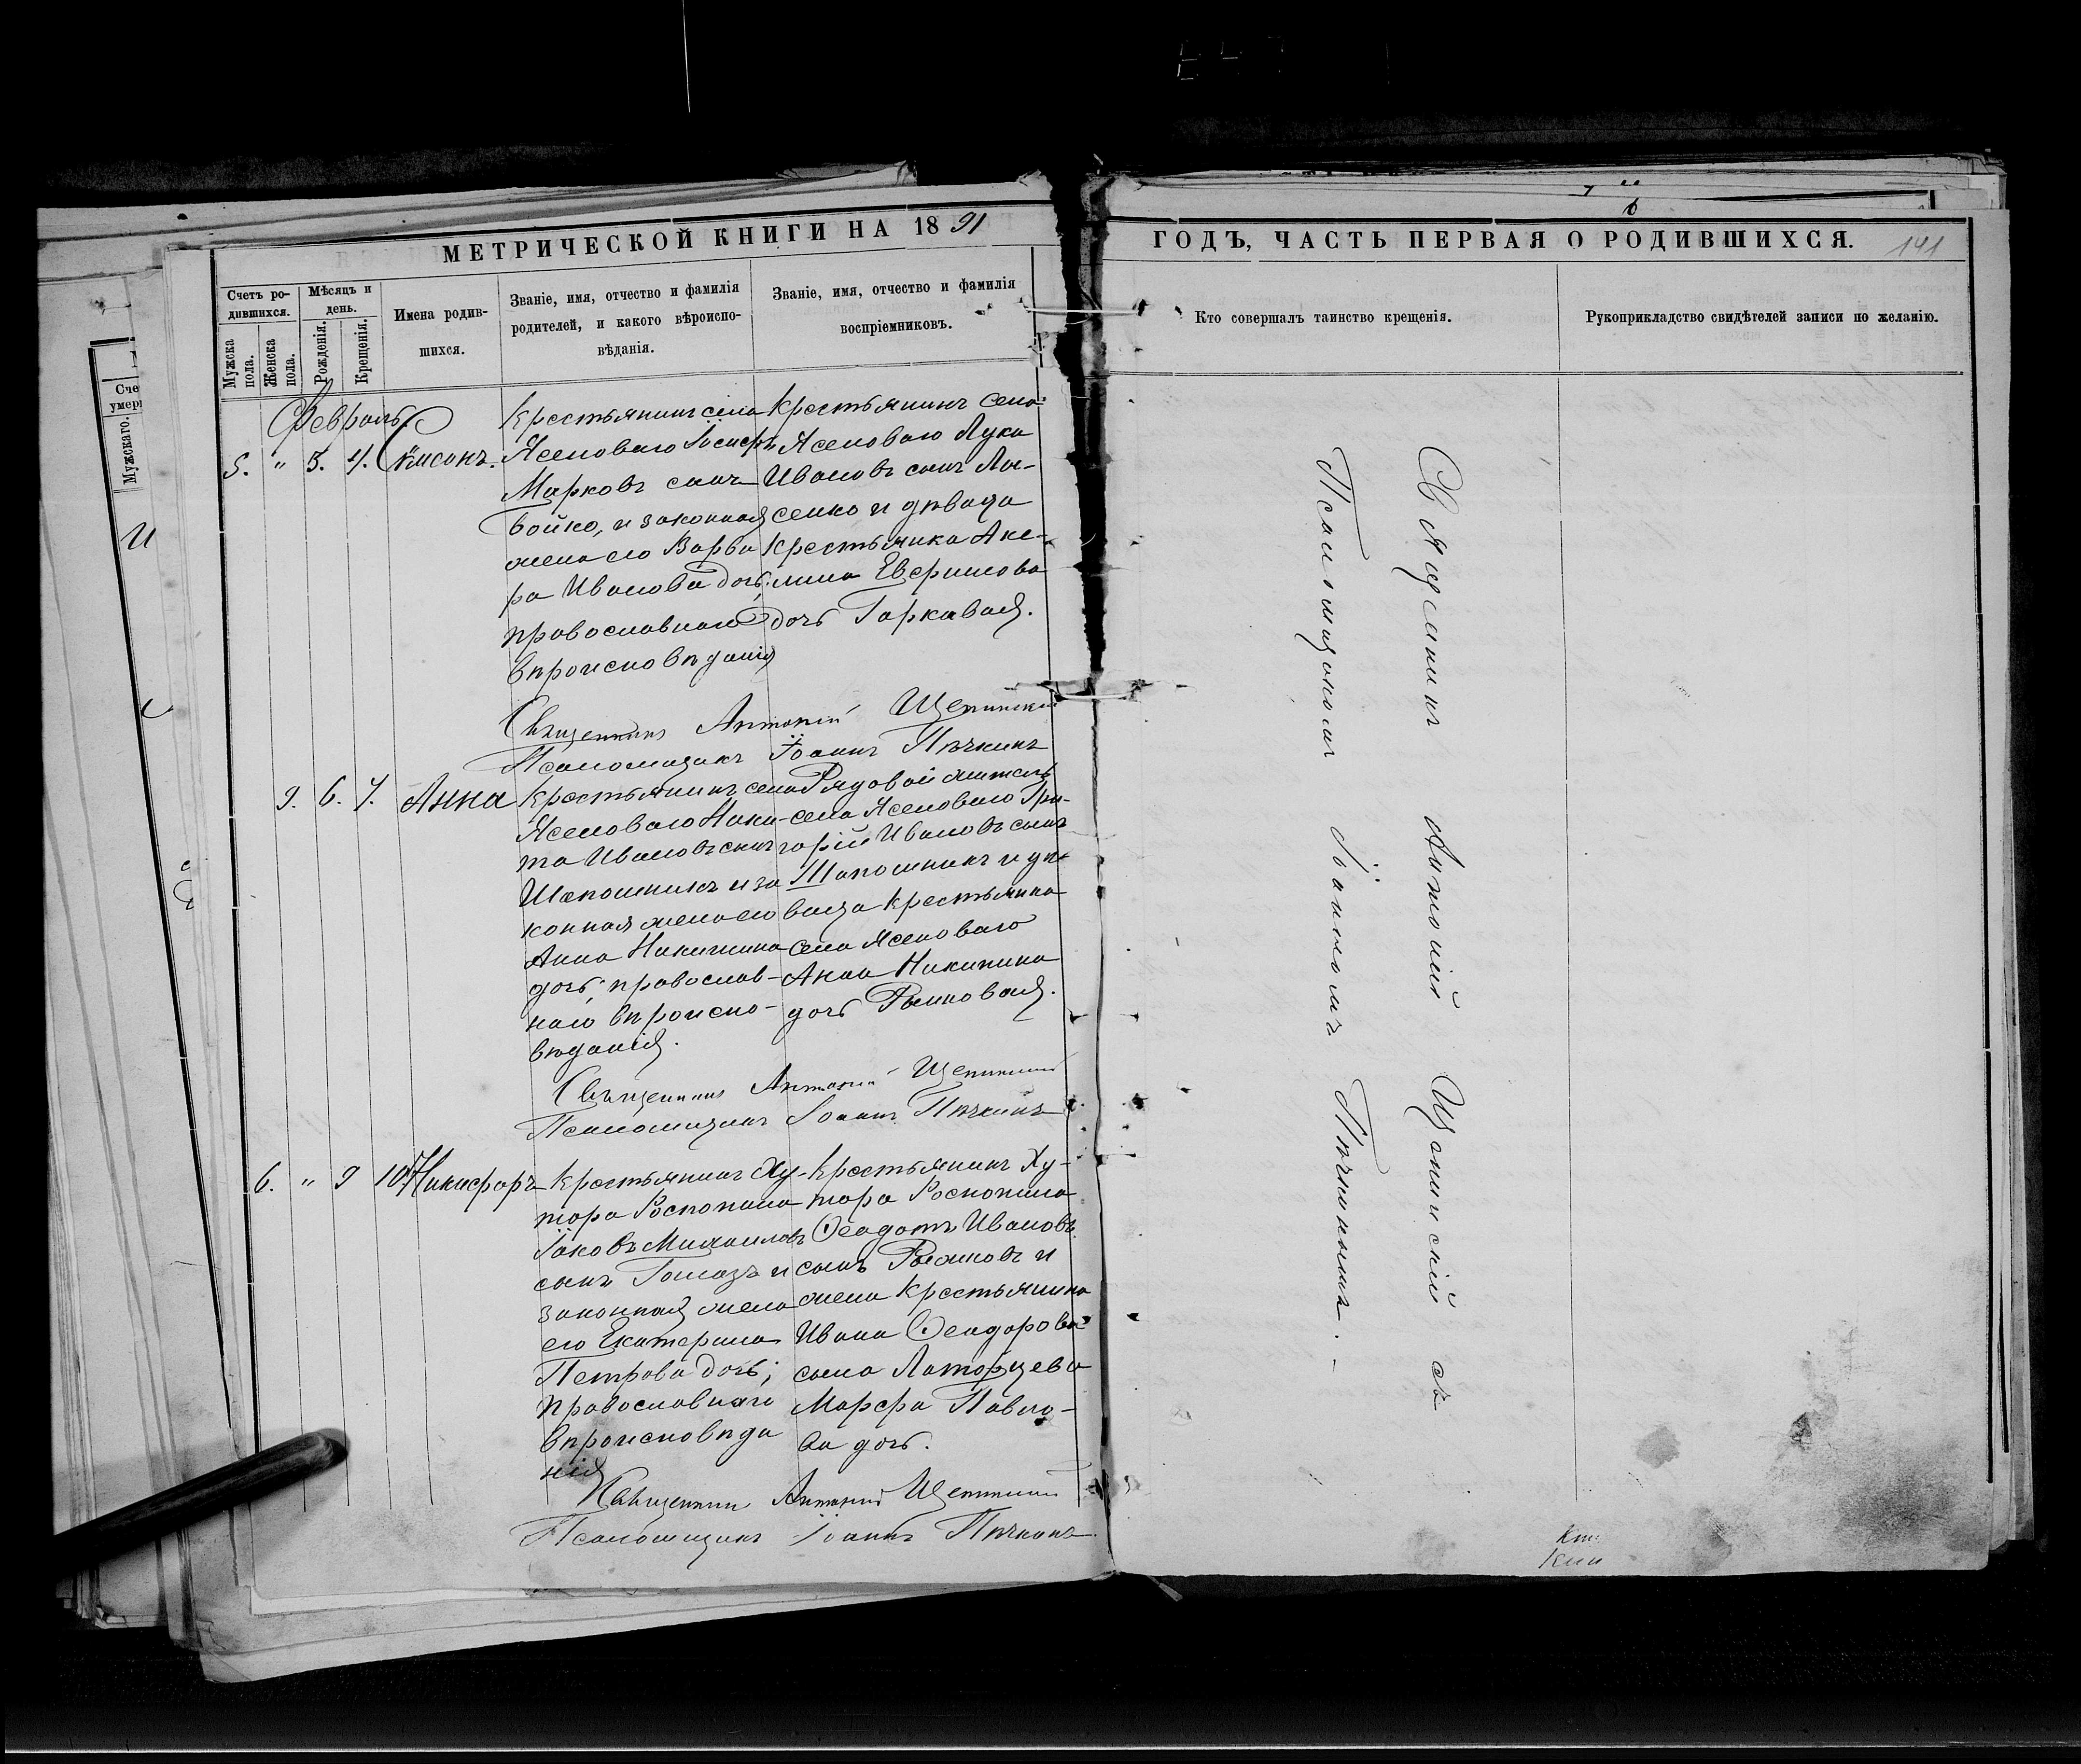 МЕТРИЧЕСКОЙ КНИГИ НА 1891
ГОДЪ, ЧАСТЬ ПЕРВАЯ О РОДИВШИХСЯ.
141
Счетъ ро-
дившихся.
Мужска
пола.
Женска
пола.
Мѣсяцъ и
день.
Рожденія.
Крещенія.
Имена родив-
шихся.
Званіе, имя, отчество и фамилія
родителей, и какого вѣроиспо-
вѣданія.
Званіе, имя, отчество и фамилія
воспріемниковъ.
Кто совершалъ таинство крещенія.
Рукоприкладство свидѣтелей записи по желанію.
Мужскаго.
Февраль
5. " 5. 7.
Крестьянинъ села
Ясеноваго Іосифъ
Марковъ сынъ
Бойко, и законная
жена его Варва
ра Иванова дочь;
православнаго
вѣроисповѣданія
Крестьянинъ села
Ясеноваго Лука
Ивановъ сынъ Лы-
сенко и дѣвица
крестьянка Аки-
лина Евфимова
дочь Гаркавая.
Священникъ Антоній Щепинскій
Псаломщикъ Іоаннъ Пѣчкинъ
9. 6. 7. Анна
Крестьянинъ села
Ясеноваго Ники-
та Ивановъ сынъ
Шапошникъ и за
конная жена его
Анна Никитина
дочь; православ-
наго вѣроиспо-
вѣданія.
Рядовой житель
села Ясеноваго Гри-
горій Ивановъ сынъ
Шапошникъ и дѣ-
вица крестьянка
села Ясеноваго
Анна Никитина
дочь
Священникъ Антоній Щепинскій
Псаломщикъ Іоаннъ Пѣчкинъ
6. " 9 10 Никифоръ
Крестьянинъ Ху-
тора Роснопина
Іаковъ Михаиловъ
сынъ и
законная жена
его Екатерина
Петрова дочь;
Православнаго
вѣроисповѣда
нія
Крестьянинъ Ху-
тора Роснопина
Ѳеодотъ Ивановъ
сынъ и
жена крестьянина
Ивана Ѳеодорова
сына Латорцева
Марфа Павло-
ва дочь.
Священникъ Антоній Щепинскій
Псаломщикъ Іоаннъ Пѣчкинъ
Священникъ Антоній Щепинскій съ
Псаломщикомъ Іоанномъ Пѣчкинымъ.